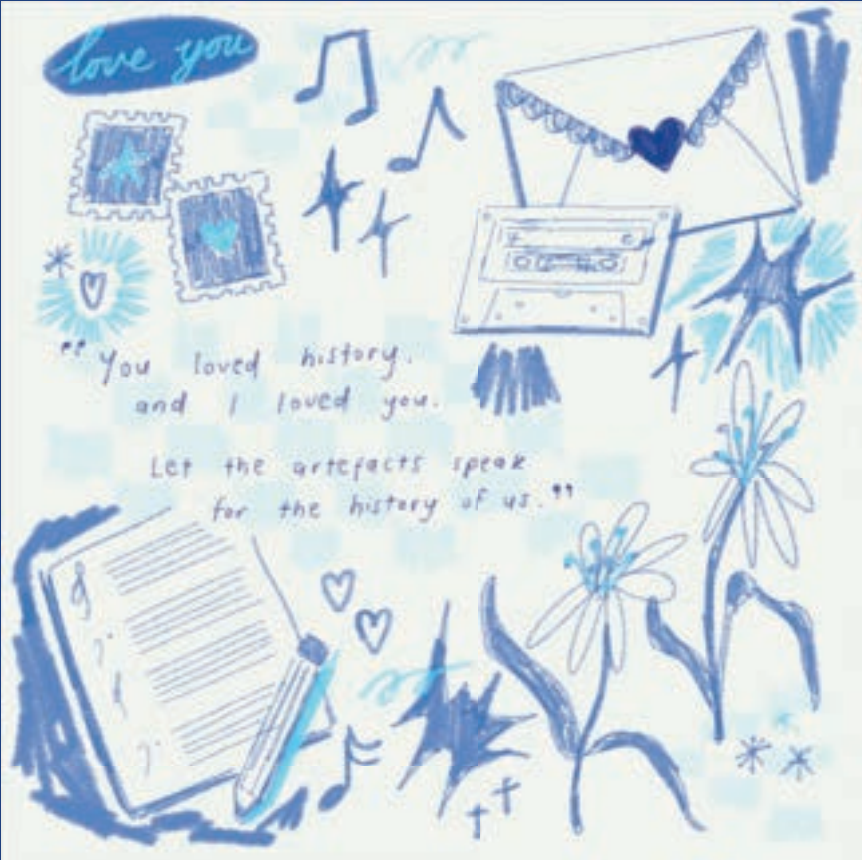 love you
"You loved history.
and I loved you.
Let the artefacts speak
for the history of us."